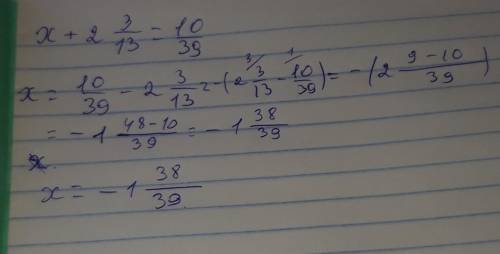 x + 2 3/13 = 10/39
x = 10/39 - 2 3/13 = -(2 3/13 - 10/39) = -(2 9-10/39)
3/ 1/
= -1 48-10/39 = -1 38/39
x.
x = -1 38/39